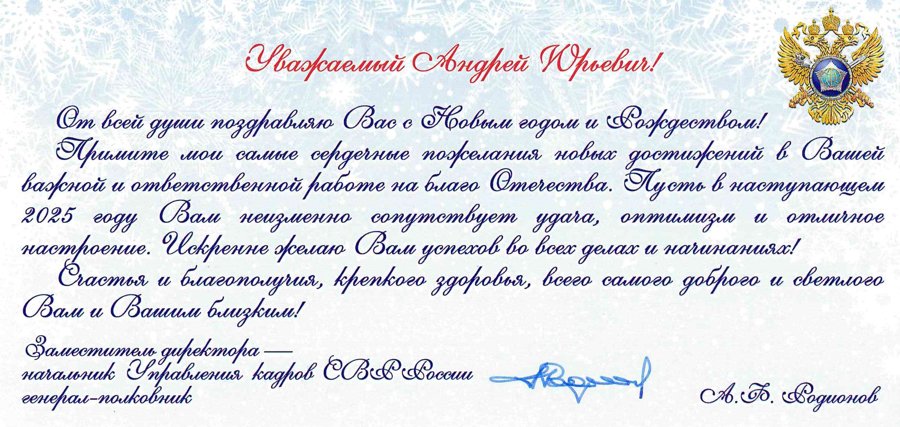 Уважаемый Андрей Юрьевич!
От всей души поздравляю Вас с Новым годом и Рождеством!
Примите мои самые сердечные пожелания новых достижений в Вашей
важной и ответственной работе на благо Отечества. Пусть в наступающем
2025 году Вам неизменно сопутствует удача, оптимизм и отличное
настроение. Искренне желаю Вам успехов во всех делах и начинаниях!
Счастья и благополучия, крепкого здоровья, всего самого доброго и светлого
Вам и Вашим близким!
Заместитель директора —
начальник Управления кадров СВР России
генерал-полковник
А.Б. Родионов